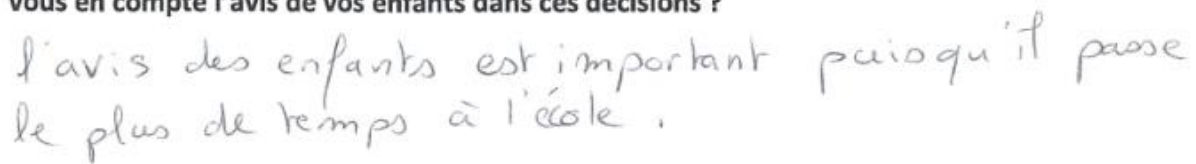 vous en compte l'avis de vos enfants dans ces décisions ?
l'avis des enfants est important puisqu'il passe
le plus de temps à l'école.